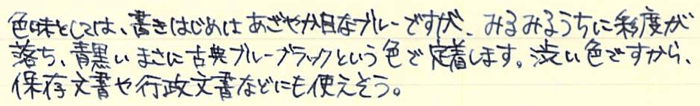 色味としては、書きはじめはあざやか目なブルーですが、みるみるうちに彩度が
落ち、青黒いまさに古典ブルーブラックという色で定着します。渋い色ですから、
保存文書や行政文書などにも使えそう。